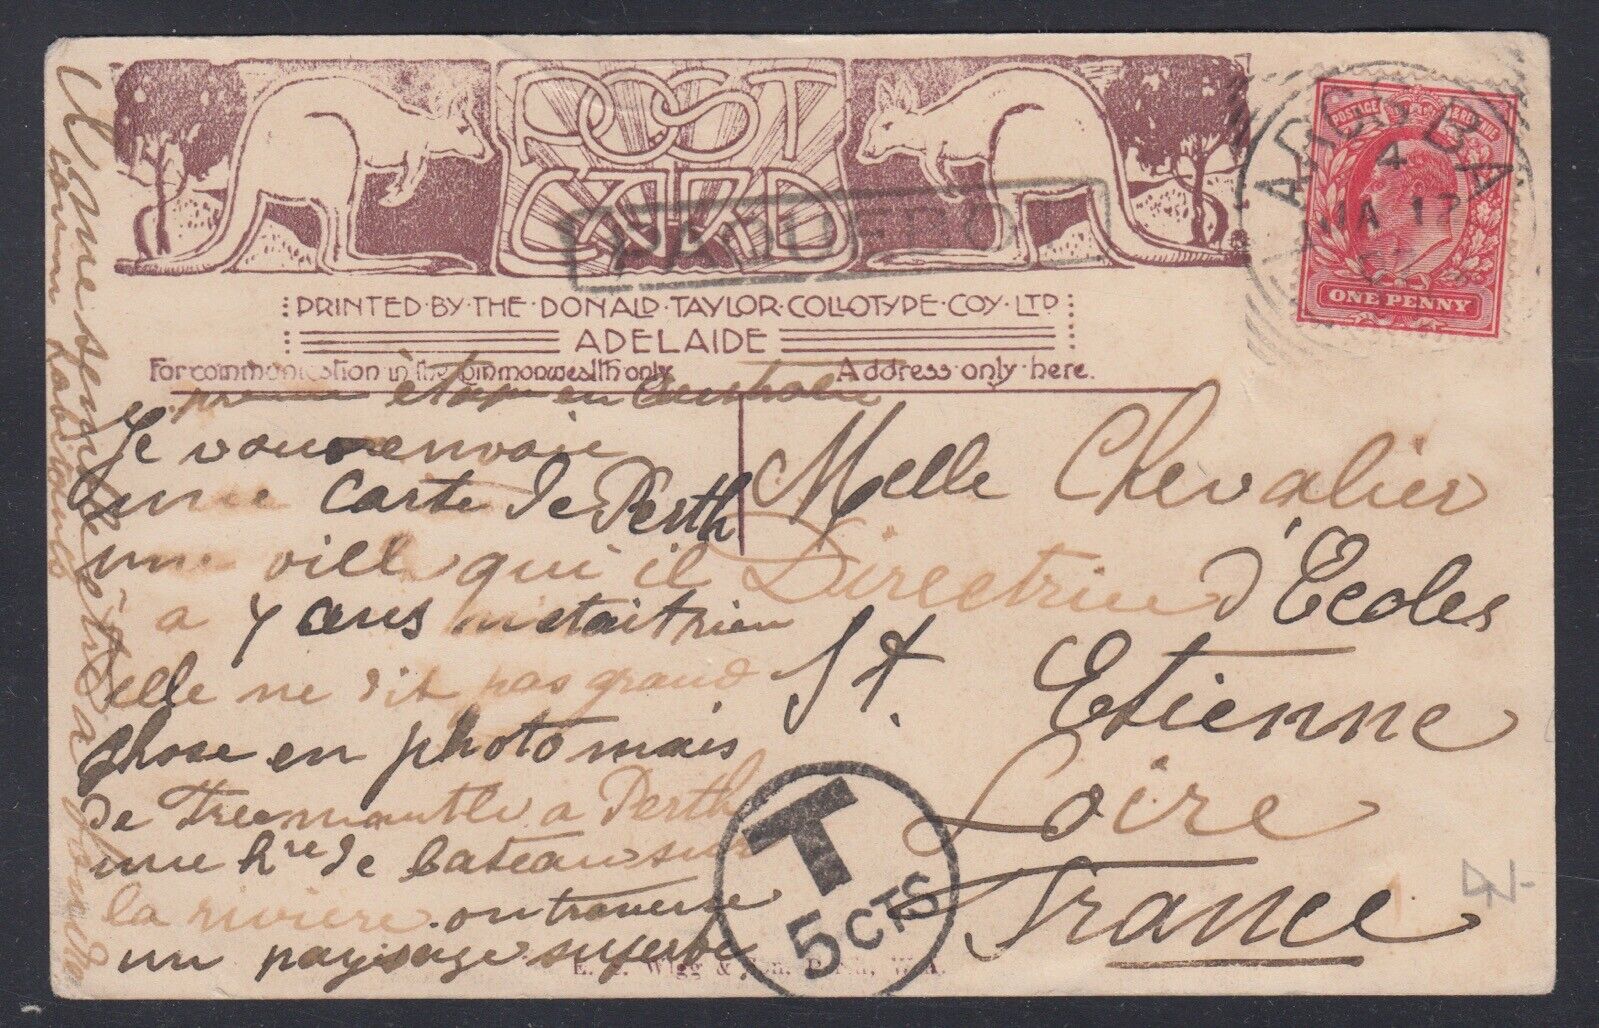 POST
CARD
PAQUEBOT
PRINTED·BY·THE·DONALD·TAYLOR·COLLOTYPE·COY·LTD
ADELAIDE
For communication in the Commonwealth only
Address only here.
POSTAGE & REVENUE
ONE PENNY
4
MA 17
étape en Australie
Je vous envoie
une carte de Perth
une ville qui il
a 7 ans n'etait rien
elle ne dit pas grand
chose en photo mais
de Freemantle a Perth
une hre de bateau sur
la riviere on traverse
un paysage superbe
Melle Chevalier
Directrice d'Ecoles
St. Etienne
Loire
France
T
5 CTS
E. S. Wigg & Son, Perth, W.A.
comme habitants